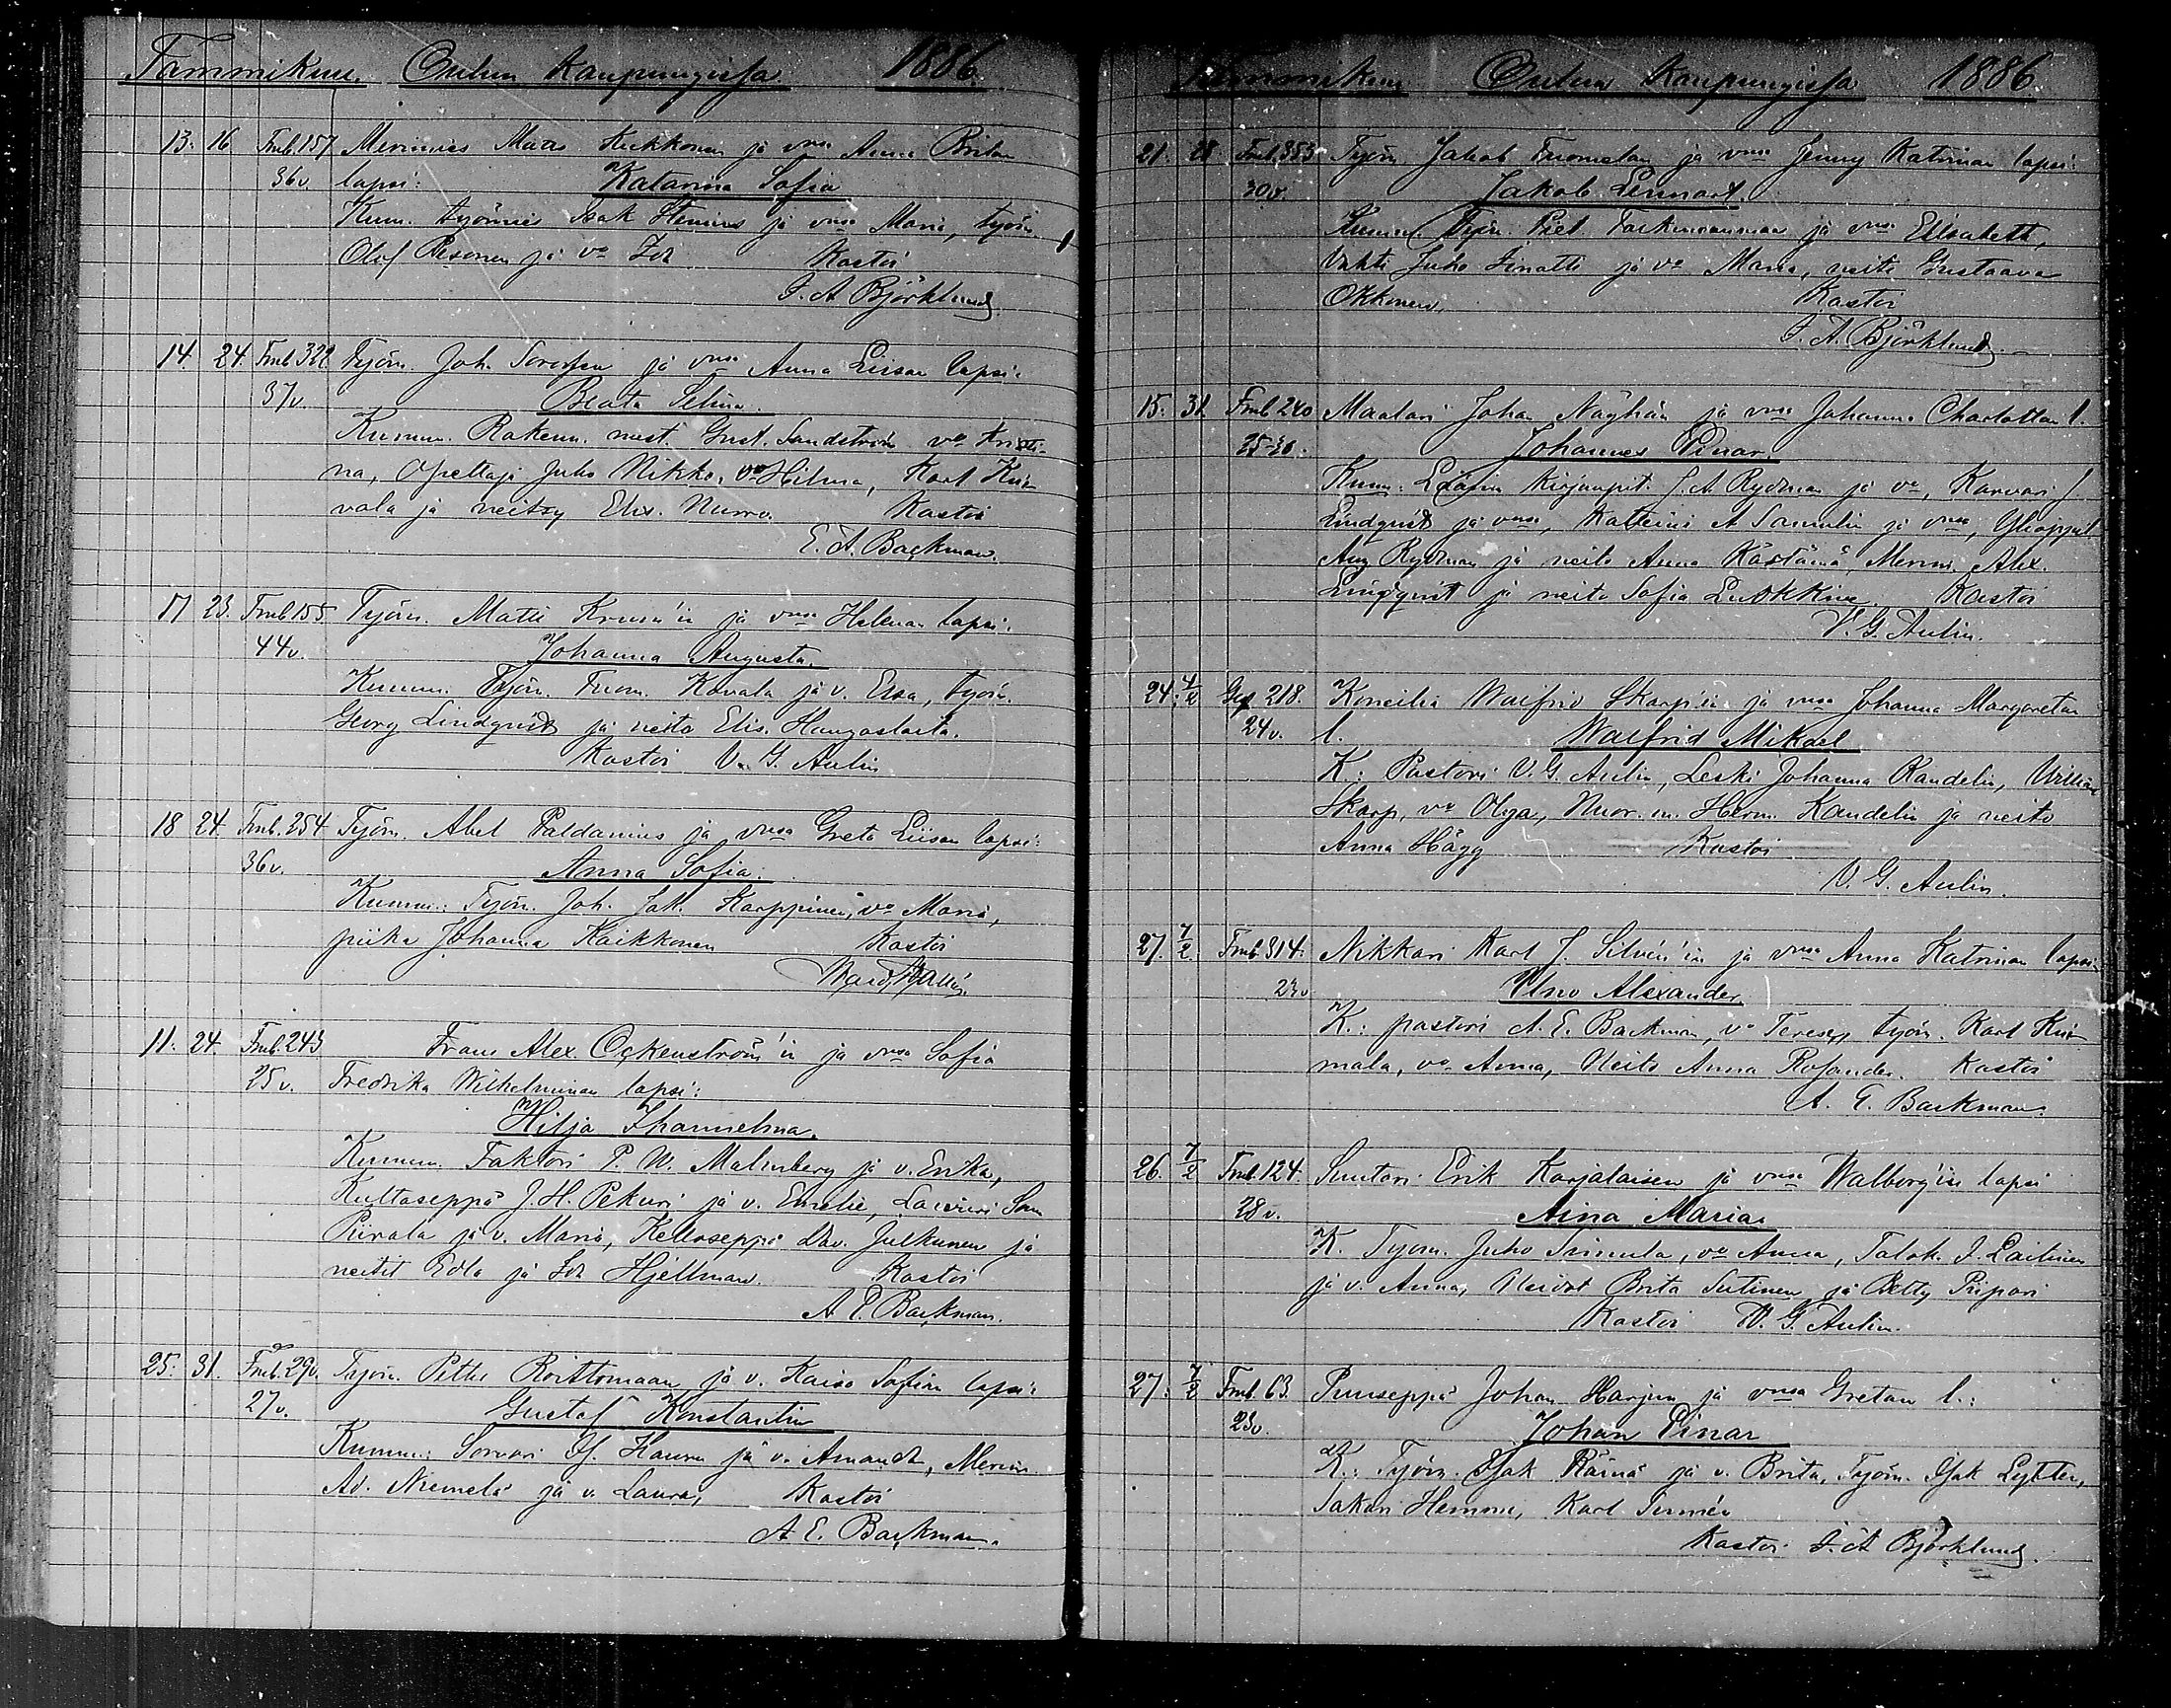 Tammikuu. Oulun Kaupungissa 1886.
13. 16. Fmb. 157 Merimies Mats Heikkonen ja vmsa Anna Britan
36v. lapsi: Katarina Sofia
Kum. työmies Isak Stenius ja vmsa Maria, työm.
Olof Pesonen ja va Ida Kastoi
F. A. Björklund
14. 24. Fmb 322 Työm. Joh. ja vmsa Anna Liisan lapsi:
37v. Beata Selina.
Kumm. Rakenn. mest. Gust. Sandström va Kristi-
na, Opettaja Juho Nikko, va Hilma, Karl Kui-
vala ja neitsy Elis. Nurro. Kastoi
E. A. Backman.
17 23. Fmb 155 Työm. Matti ja vmsa Helenan lapsi.
44v. Johanna Augusta.
Kumm. Työm. Tuom. Kovala ja v. Elsa, työm.
Georg Lindqvist ja neito Elis. Haugaslaita.
Kastoi V. G. Aulin
18 24. Fmb. 254 Työm. Abel Paldanius ja vmsa Greta Liisan lapsi:
36v. Anna Sofia.
Kumm.: Työm. Joh. Jak. Karppinen, va Maria,
piika Johanna Kaikkonen Kastoi
11. 24. Fmb. 243 Frans Alex. Ockenström'in ja vmsa Sofia
25v. Fredrika Wilhelminan lapsi:
Hilja Ihanelma.
Kumm. Faktori P. W. Malmberg ja v. Erika,
Kultaseppä J. H. Pekuri ja v. Emelie, Laivuri Sam
Piirala ja v. Maria, Kelloseppä Dav. Julkunen ja
neitit Edla ja Ida Hjellman. Kastoi
A. E. Backman.
25. 31. Fmb. 290. Työm. Petter Roittomaan ja v. Kaisa Sofian lapsi:
27v. Gustaf Konstantin
Kumm.: Sorvari If. Hauru ja v. Amanda, Merim.
Ad. Niemelä ja v. Laura, Kastoi
A. E. Backman.
Tammikuu Oulun Kaupungissa 1886.
21. 28 Fmb 353 Työm. Jakob Tuomelan ja vmsa Jenny Katrinan lapsi:
30v. Jakob Lennart.
Kumm. Työm. Piet. Tarkinmannian ja vmsa Elisabeth,
Vahti Juho Finatti ja va Maria, neiti Gustaava
Okkonen, Kastoi
F. A. Björklund.
15. 31. Fmb 240 Maalari Johan ja vmsa Johanna Charlottan l.
25-26. Johannes Einar.
Kumm. Läänin kirjanpit. J. A. Rydman ja va, Karvari J.
Lindqvist ja vmsa, Katteini A Samulin ja vmsa, Ylioppil
Aug Rydman ja neito Anna Kästämä, Merim. Alex.
Lindqvist ja neito Sofia Luokkinen Kastoi
V. G. Aulin.
24. 4/2 218. Waifrid Skarp'in ja vmsa Johanna Margaretan
24v. l. Waifrid Mikael
K.: Pastori V. G. Aulin, Leski Johanna Kandelin, William
Skarp, va Olga, Nuor. m. Herm. Kandelin ja neito
Anna Hägg Kastoi
V. G. Aulin.
27. 7/2 Fmb 314. Nikkari Karl J. Silvén'in ja vmsa Anna Katrinan lapsi:
23v Uno Alexander
K.: pastori A. E. Backman, va Terese, työm. Karl Kui-
mala, va Anna, Neito Anna Rosander. Kastoi
A. E. Backman.
26. 7/2 Fmb. 124. Suutari Erik Karjalaisen ja vmsa Walborg'in lapsi
28v. Aina Maria.
K. Työm. Juho Simula, va Anna, Talok. J. Laitinen
ja v. Anna, Neidot Brita Sutinen ja Betty Piipari
Kastoi V. G. Aulin.
27. 7/2 Fmb. 63. Puuseppä Johan Harjun ja vmsa Gretan l.:
23v. Johan Einar
K.: Työm. Isak Räinä ja v. Brita, Työm. Isak Lytter,
Sakari Hemmi, Karl Sumén
Kastoi F. A. Björklund.